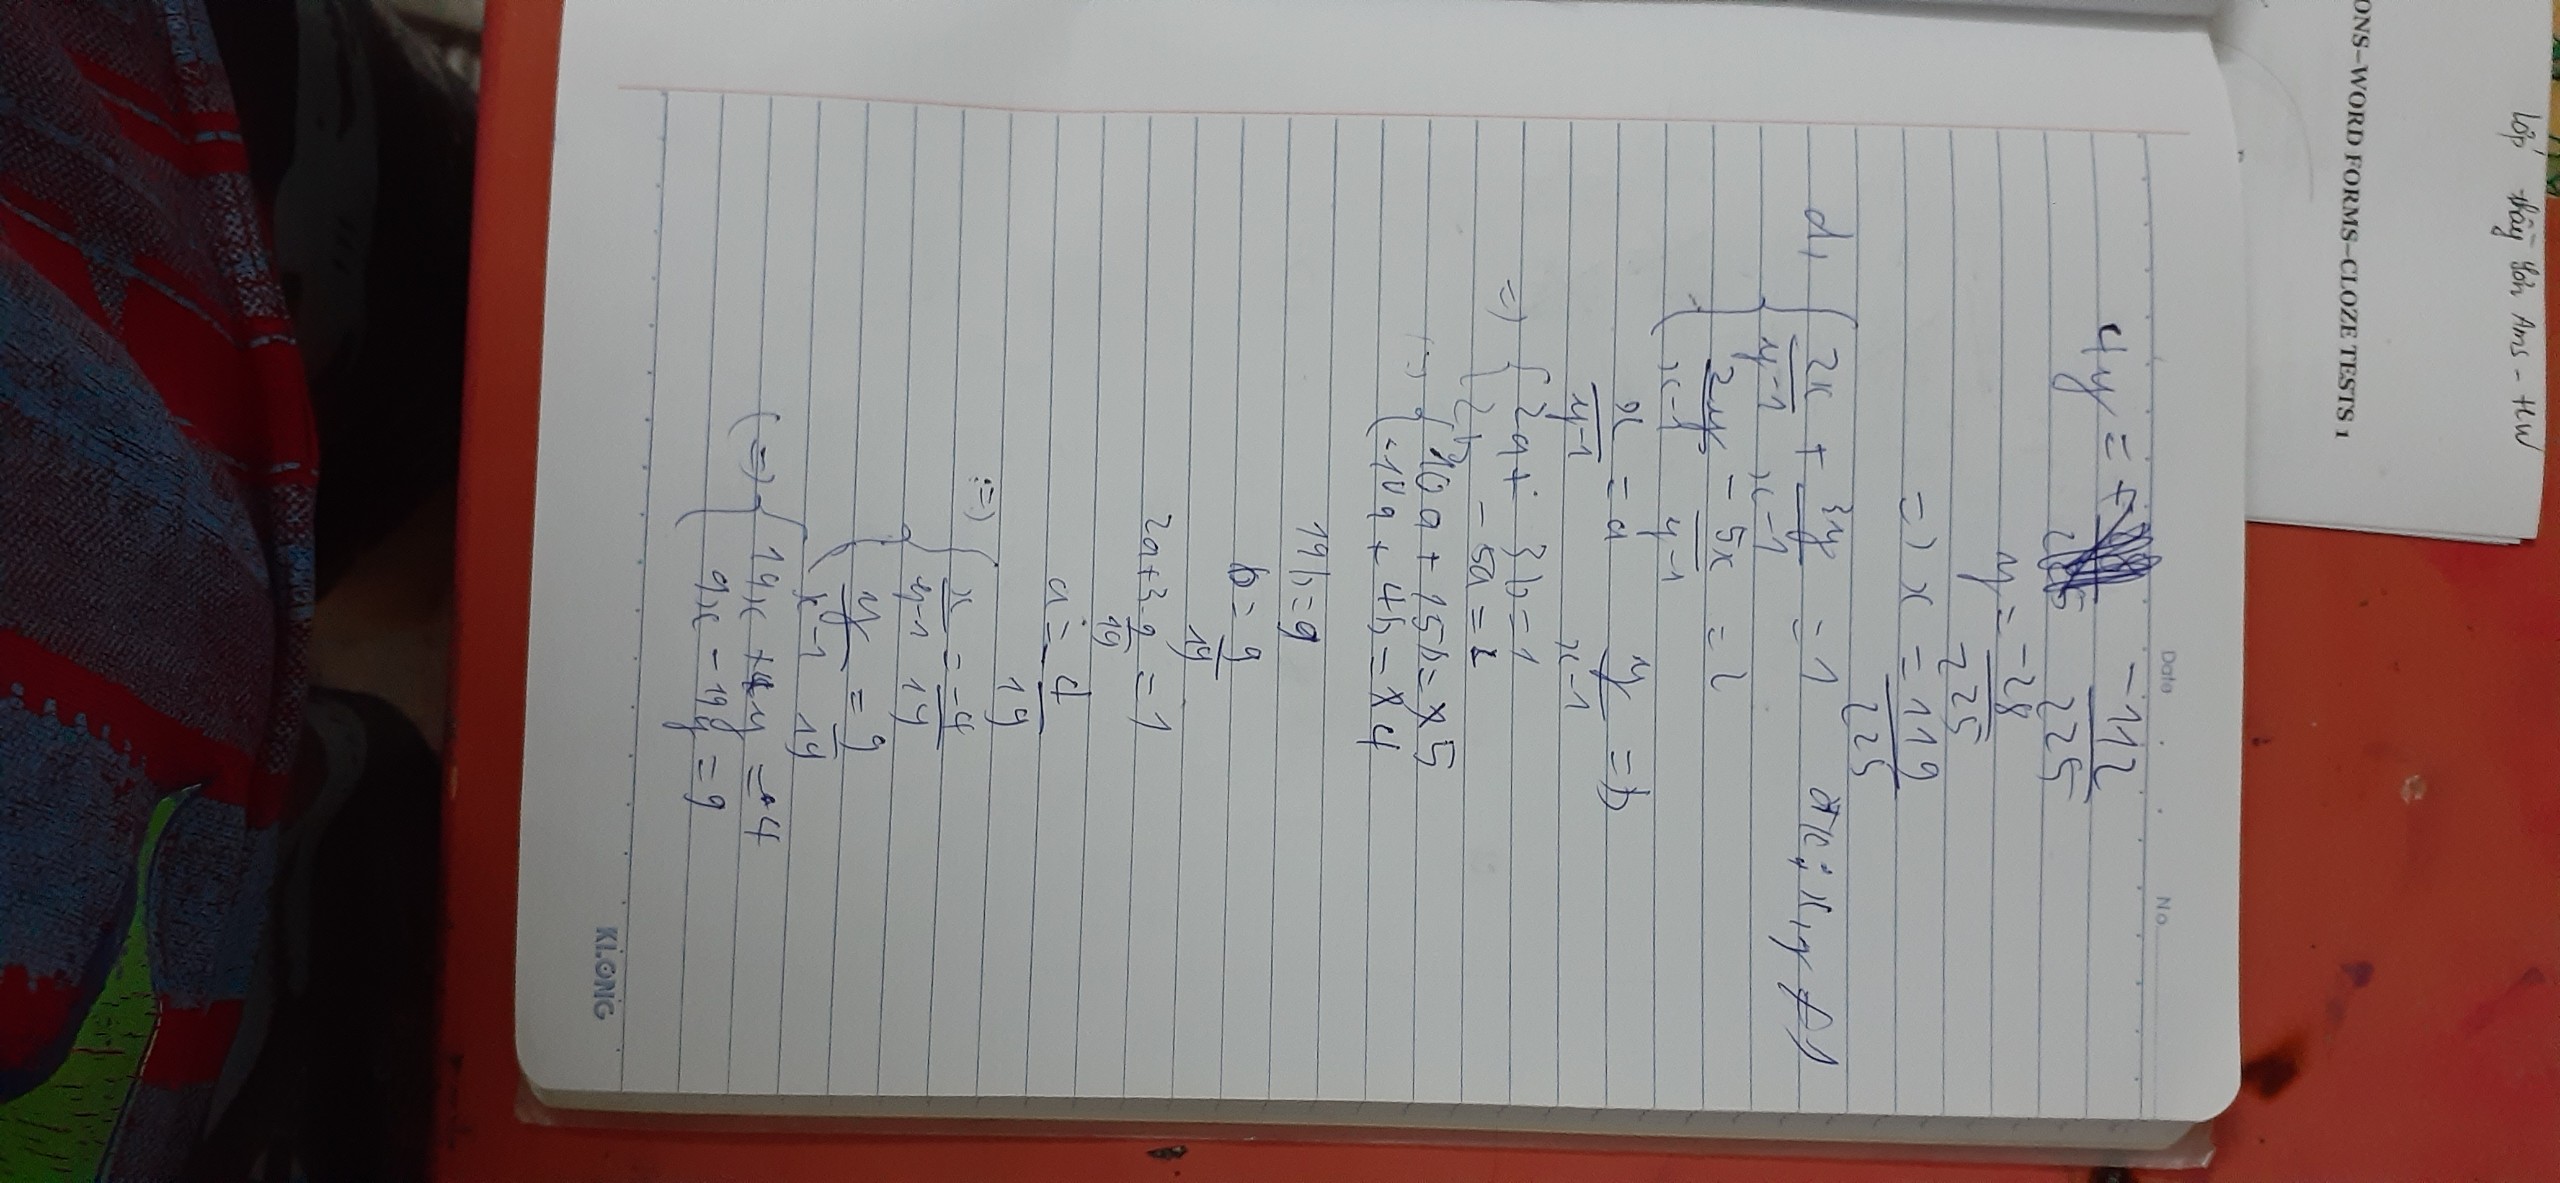 Lớp thầy Sơn Ams - HW
ONS–WORD FORMS–CLOZE TESTS 1
Date No
4y = -112/225
y = -28/225
=) x = 119/225
d, { 2x/y-1 + 3y/x-1 = 1 đk: x,y ≠ 1
2y/x-1 - 5x/y-1 = 2
x/y-1 = a y/x-1 = b
=) { 2a + 3b = 1
2b - 5a = 2
(=) { 10a + 15b = 5
-10a + 4b = 4
19b = 9
b = 9/19
2a + 3.9/19 = 1
a = -4/19
(=) { x/y-1 = -4/19
y/x-1 = 9/19
(=) { 19x + 4y = 4
9x - 19y = 9
KLONG